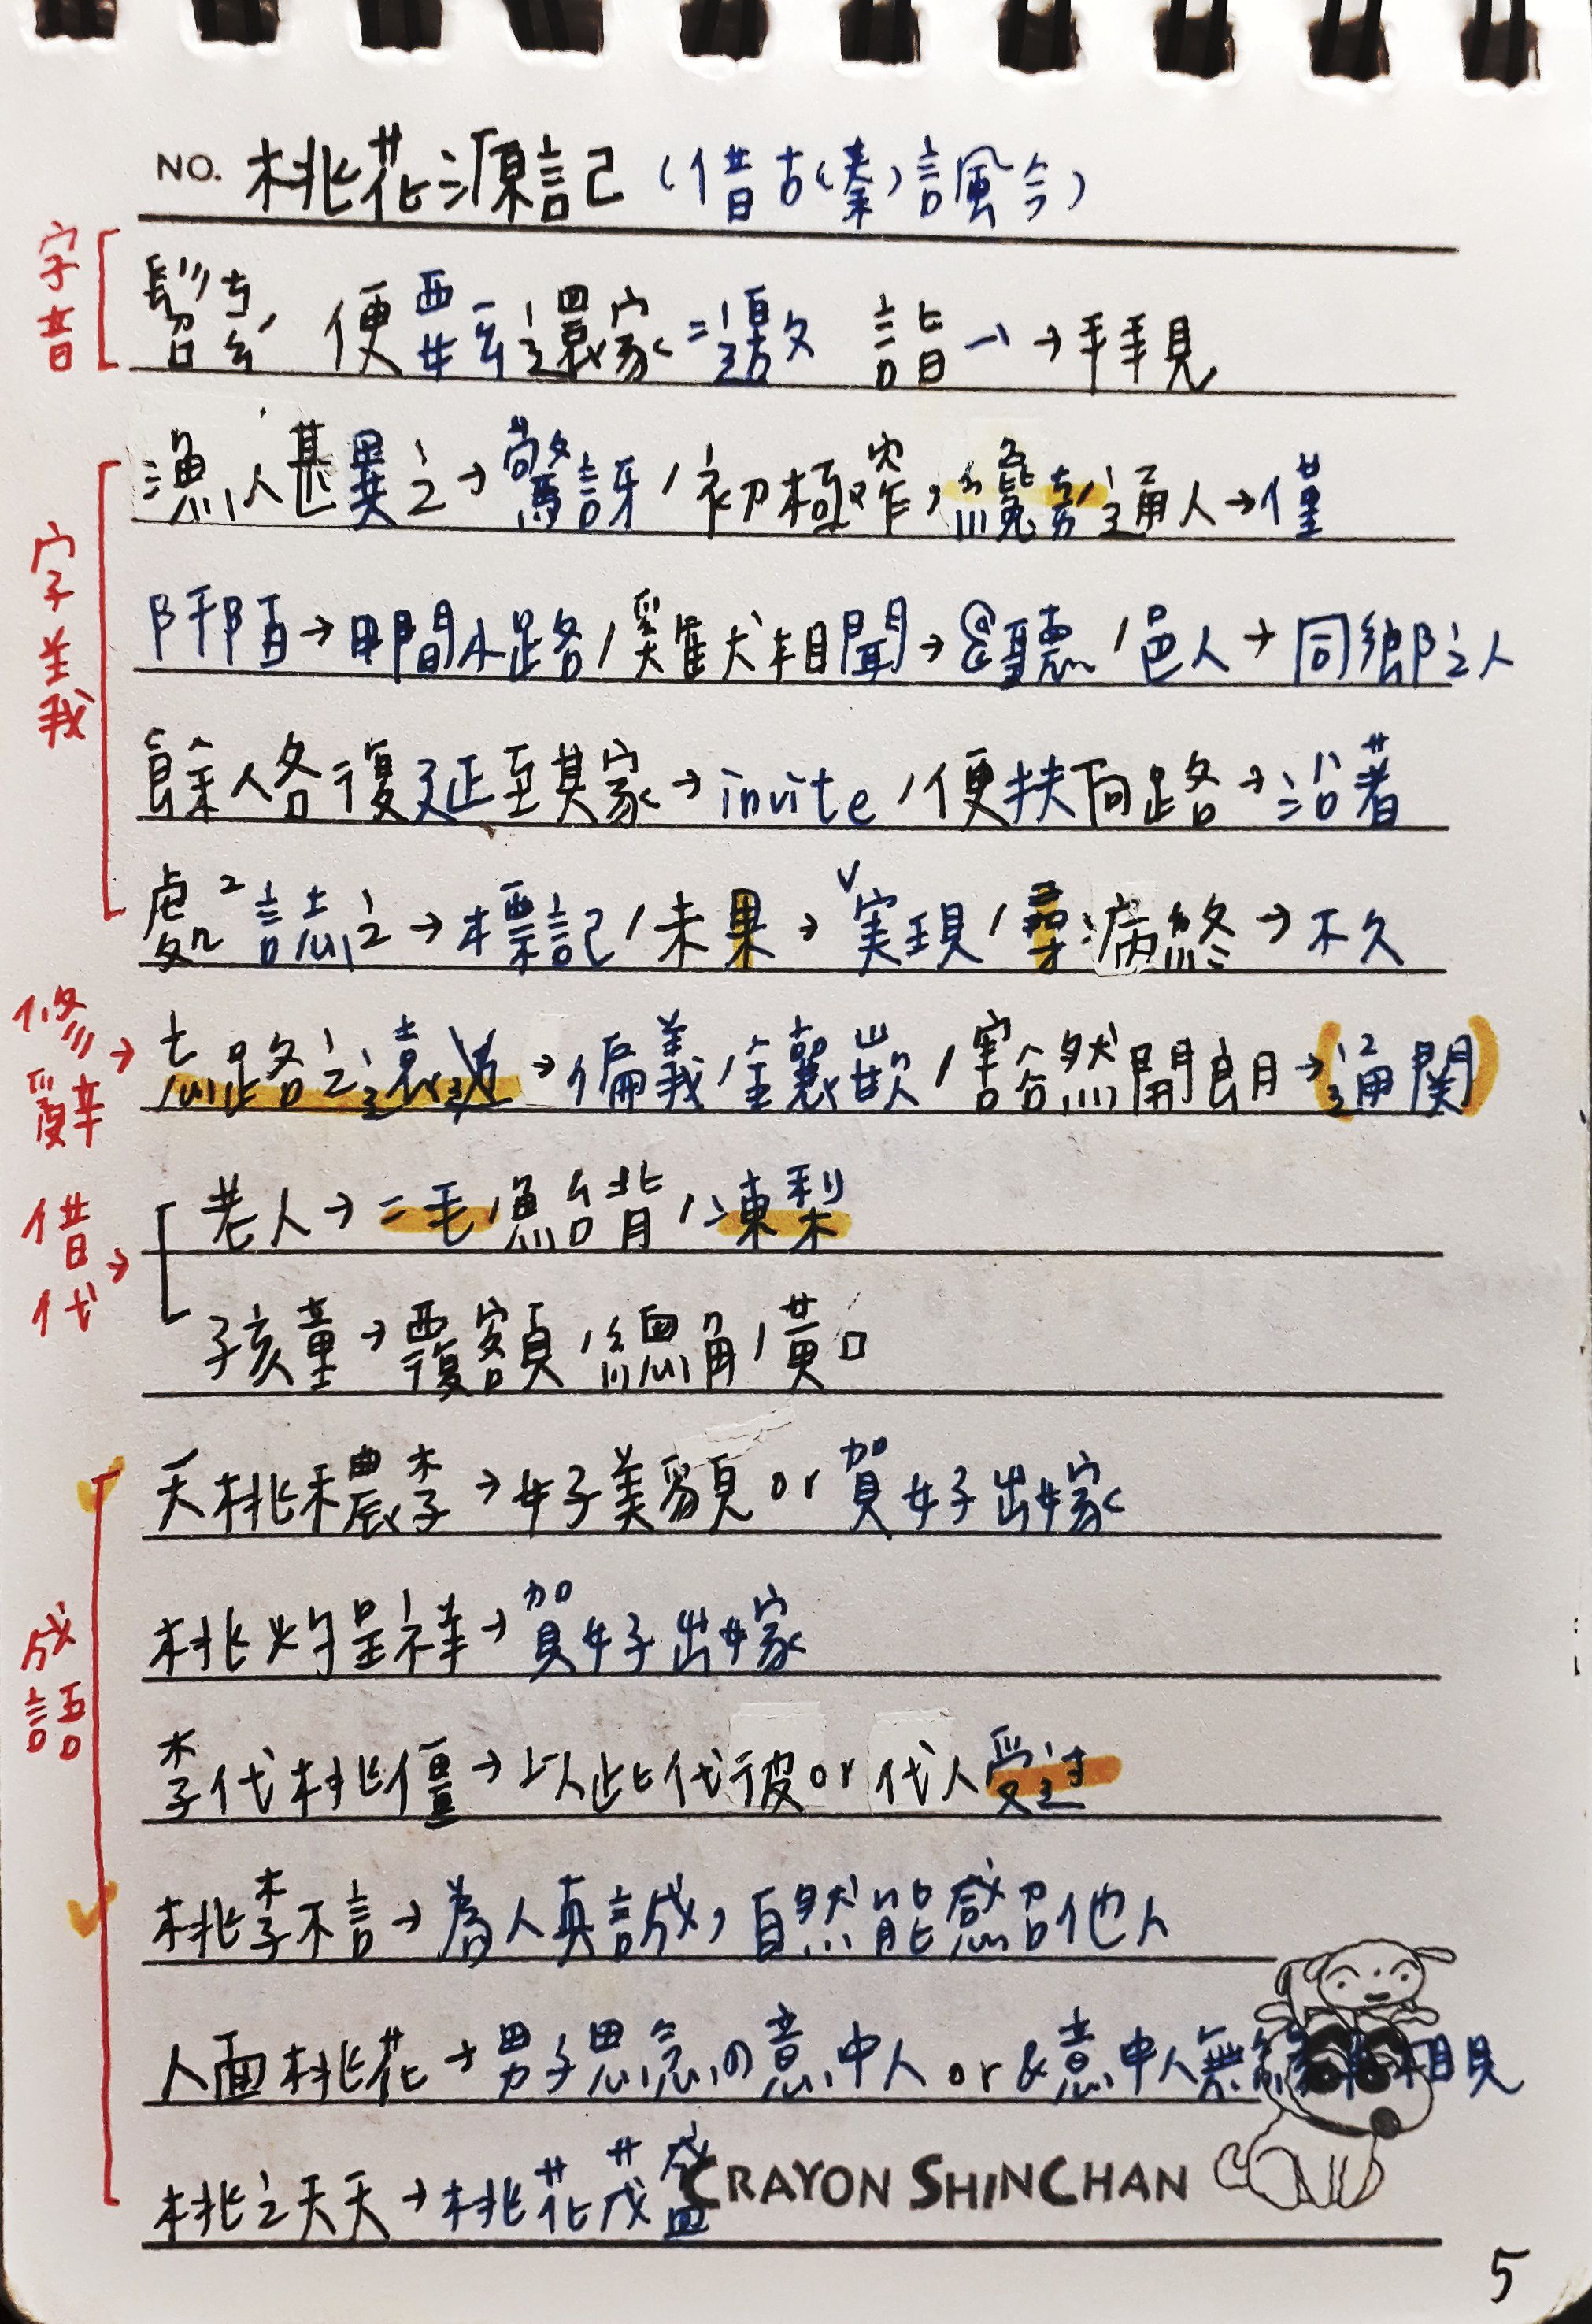 NO. 桃花源記(借古(秦)諷今)
字音
髫ㄊㄧㄠˊ 便要ㄧㄠ還家=邀 詣ㄧˋ→拜見
字義
漁人甚異之→驚訝/初極窄,纔ㄘㄞˊ通人→僅
阡陌→田間小路/雞犬相聞→聽/邑人→同鄉之人
餘人各復延至其家→invite/便扶向路→沿著
處2誌之→標記/未果→実現/尋病終→不久
修辭→
忘路之遠近→偏義/鑲嵌/豁然開朗→(通関)
借代→
老人→二毛/鮐背/凍梨
孩童→覆額/總角/黃口
成語
夭桃穠李→女子美貌or賀女子出嫁
桃灼呈祥→賀女子出嫁
李代桃僵→以此代彼or代人受过
桃李不言→為人真誠,自然能感召他人
人面桃花→男子思念の意中人or&意中人無緣相見
桃之夭夭→桃花茂盛
CRAYON SHINCHAN
5